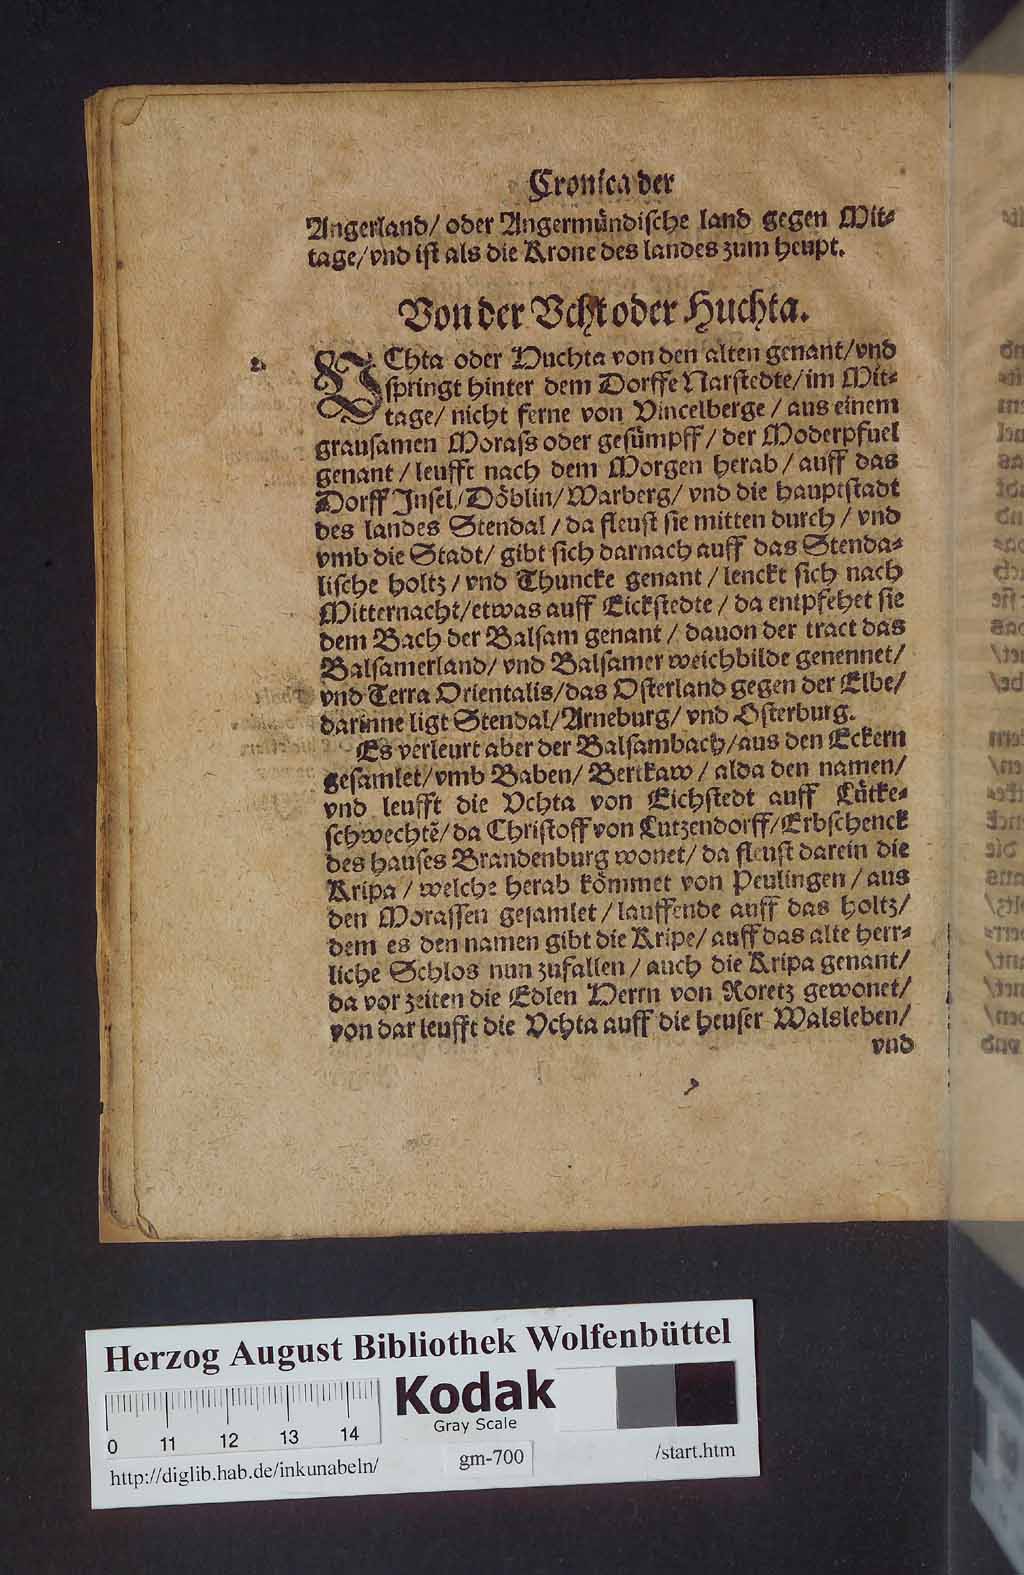 Cronica der
Angerland/ oder Angermündische land gegen Mit⸗
tage/ vnd ist als die Krone des landes zum heupt.
Von der Vcht oder Huchta.
2.
VChta oder Huchta von den alten genant/ vnd
springt hinter dem Dorffe Narstedte/ im Mit⸗
tage/ nicht ferne von Vincelberge / aus einem
grausamen Morass oder gesümpff / der Moderpfuel
genant / leufft nach dem Morgen herab / auff das
Dorff Insel/ Döblin/ Warberg/ vnd die hauptstadt
des landes Stendal / da fleust sie mitten durch / vnd
vmb die Stadt/ gibt sich darnach auff das Stenda⸗
lische holtz / vnd Thuncke genant / lenckt sich nach
Mitternacht/ etwas auff Eickstedte / da entpfehet sie
dem Bach der Balsam genant / dauon der tract das
Balsamerland/ vnd Balsamer weichbilde genennet/
vnd Terra Orientalis/ das Osterland gegen der Elbe/
darinne ligt Stendal/ Arneburg/ vnd Osterburg.
Es verleurt aber der Balsambach/ aus den Eckern
gesamlet/ vmb Baben/ Bertkaw / alda den namen/
vnd leufft die Vchta von Eichstedt auff Lütke⸗
schwechtẽ/ da Christoff von Lutzendorff/ Erbschenck
des hauses Brandenburg wonet/ da fleust darein die
Kripa / welche herab kömmet von Peulingen / aus
den Morassen gesamlet / lauffende auff das holtz/
dem es den namen gibt die Kripe/ auff das alte herr⸗
liche Schlos nun zufallen / auch die Kripa genant/
da vor zeiten die Edlen Herrn von Roretz gewonet/
von dar leufft die Vchta auff die heuser Walsleben/
vnd
Herzog August Bibliothek Wolfenbüttel
Kodak
Gray Scale
0 11 12 13 14
http://diglib.hab.de/inkunabeln/
gm-700
/start.htm